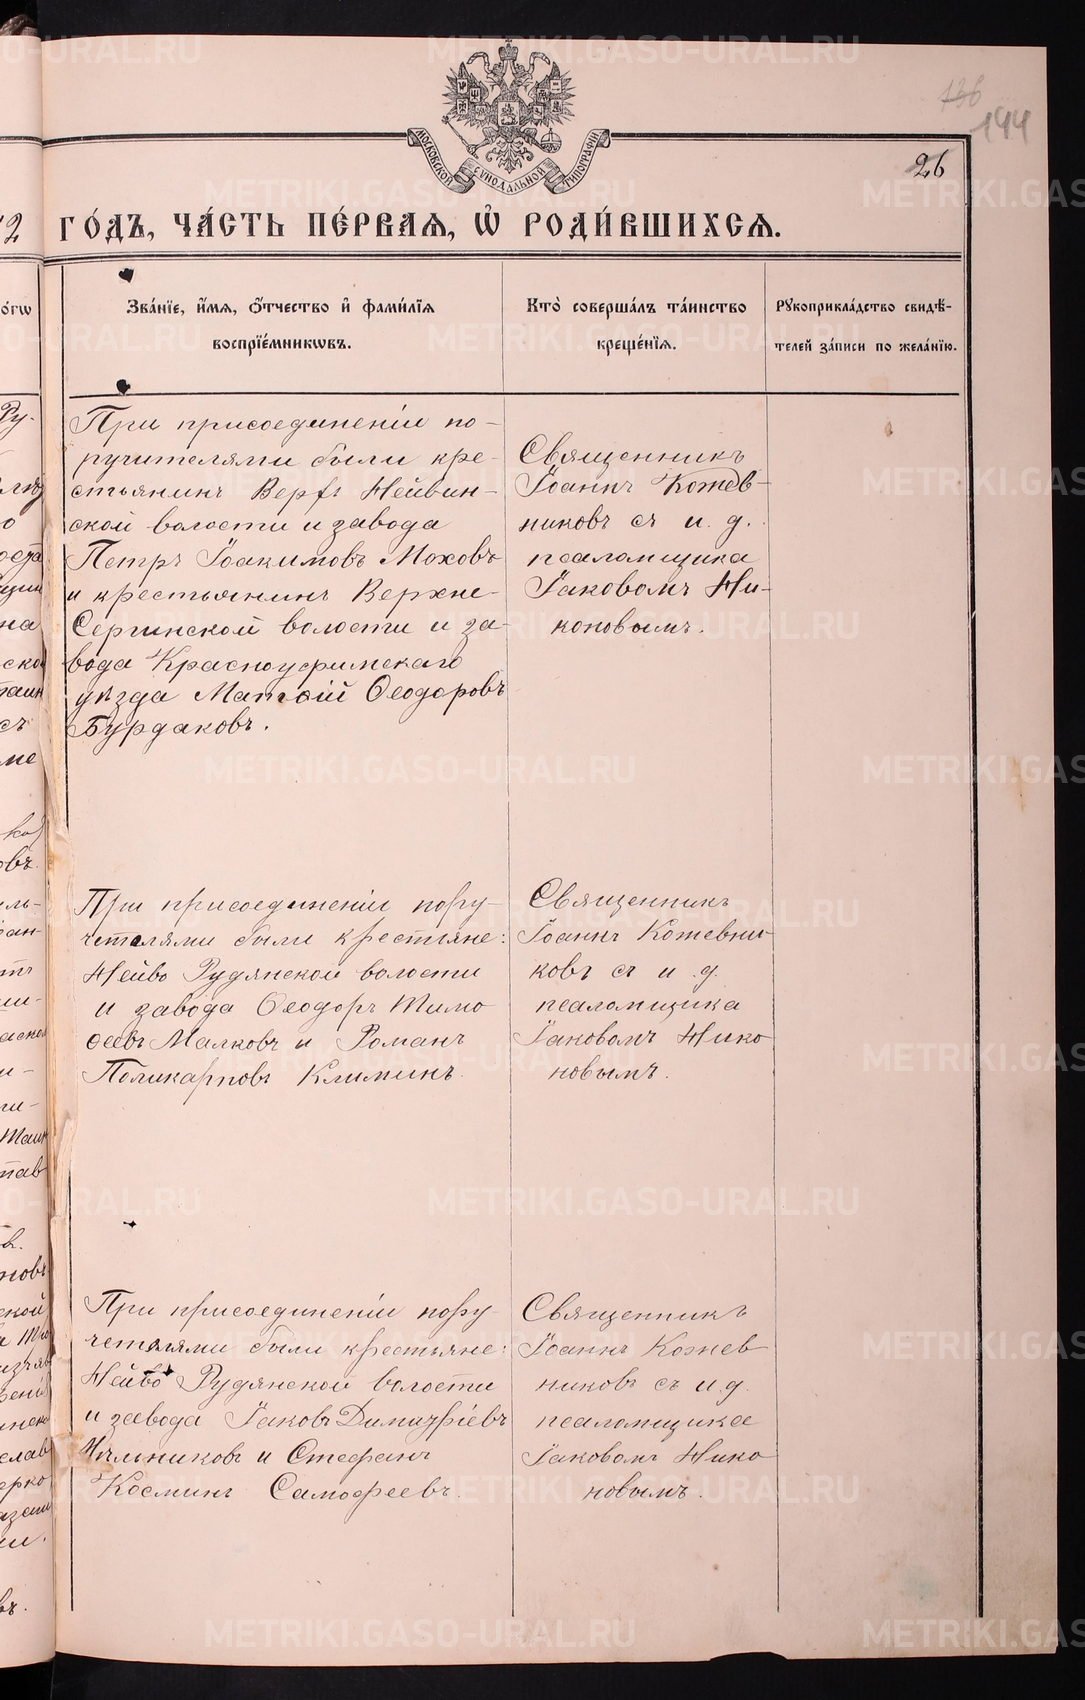 136
144
МОСКОВСКОЙ СУНОДАЛЬНОЙ ТИПОГРАФИИ
26
2 ГО́ДЪ, ЧА́СТЬ ПЕ́РВАѦ, Ѡ҆ РОДИ́ВШИХСѦ.
Зва́нїе, и҆́мѧ, ѻ҆́тчество и҆ фами́лїѧ
воспрїе́мникѡвъ.
Кто̀ соверша́лъ та́инство
креще́нїѧ.
Рꙋкоприкла́дство свидѣ́-
телей за́писи по жела́нїю.
При присоединеніи по-
ручителями были кре-
стьянинъ Верхъ Нейвин-
ской волости и завода
Петръ Іоакимовъ Моховъ
и крестьянинъ Верхне-
Сергинской волости и за-
вода Красноуфимскаго
уѣзда Матѳій Ѳеодоровъ
Бурдаковъ.
Священникъ
Іоаннъ Кожев-
никовъ съ и. д.
псаломщика
Іаковомъ Ни-
коновымъ.
При присоединеніи пору-
чителями были крестьяне:
Нейво Рудянской волости
и завода Ѳеодоръ Тимо
ѳеевъ Малковъ и Романъ
Поликарповъ Климинъ.
Священникъ
Іоаннъ Кожевни
ковъ съ и. д.
псаломщика
Іаковомъ Нико
новымъ.
При присоединеніи пору-
чителями были крестьяне:
Нейво Рудянской волости
и завода Іаковъ Димитріевъ
и Стефанъ
Косминъ
Священникъ
Іоаннъ Кожев
никовъ съ и. д.
псаломщика
Іаковомъ Нико
новымъ.
METRIKI.GASO-URAL.RU